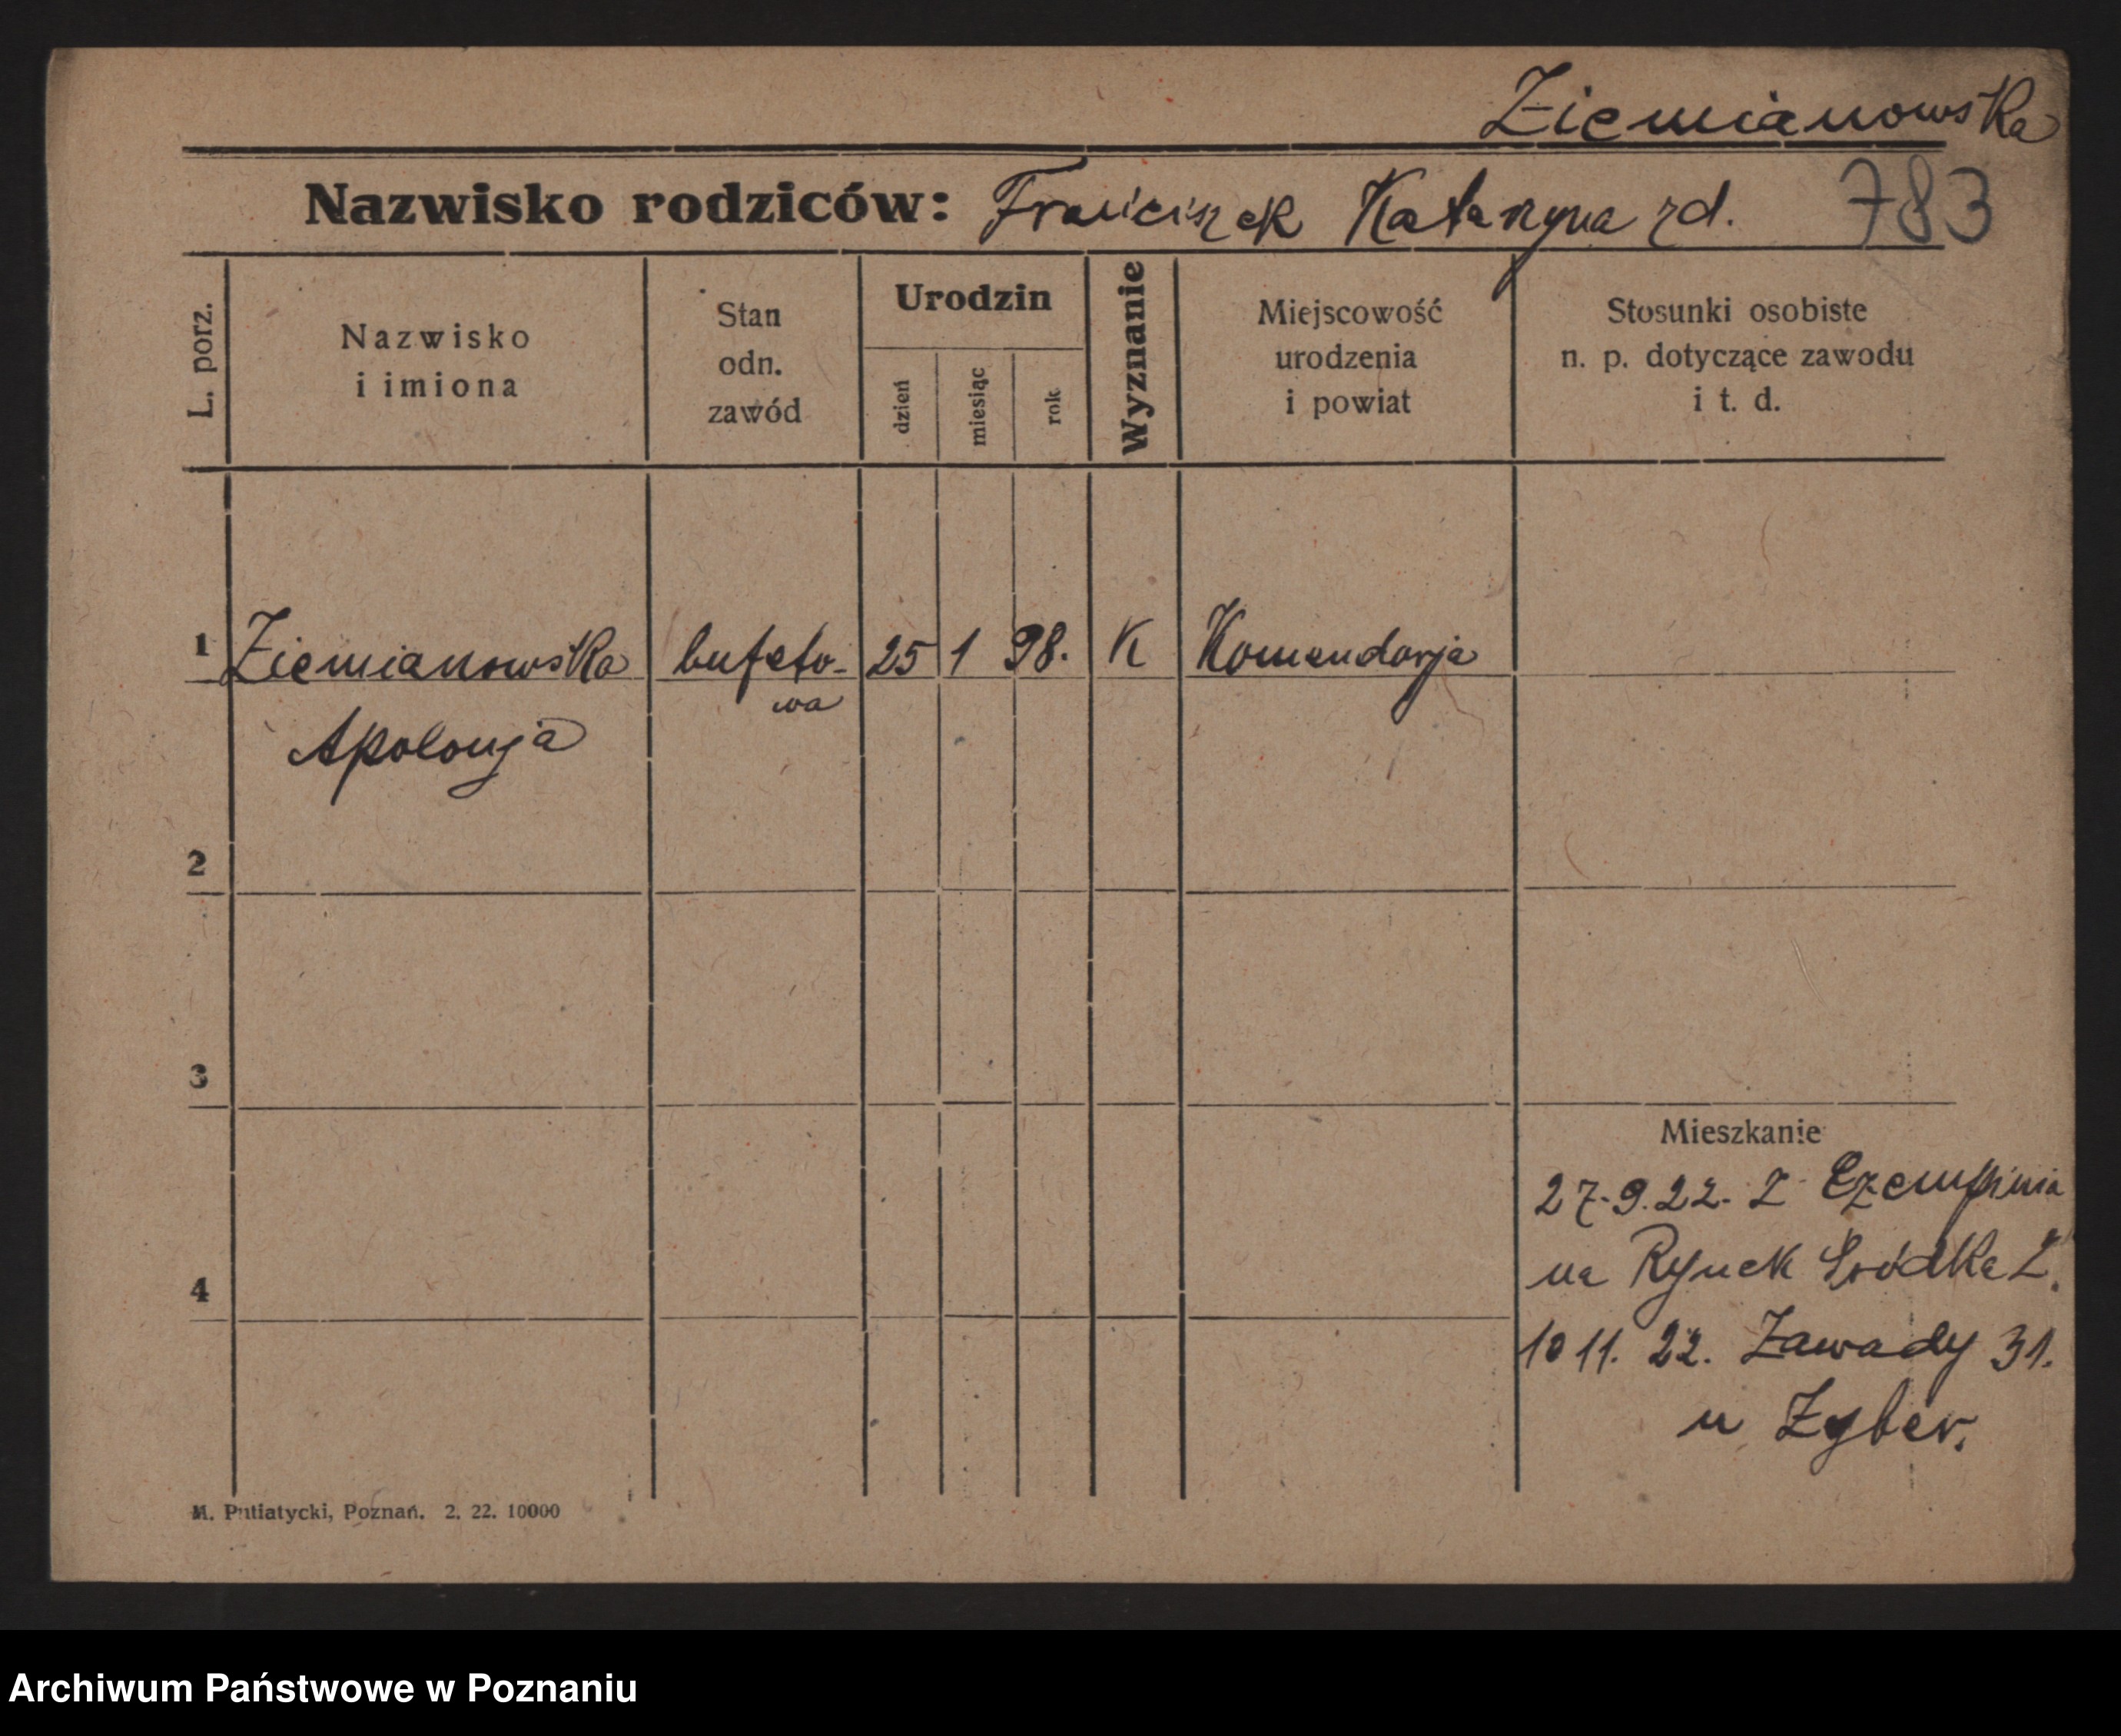 Ziemianowska
Nazwisko rodziców: Franciszek Katarzyna zd. 783
L. porz.
Nazwisko
i imiona
Stan
odn.
zawód
Urodzin
dzień
miesiąc
rok
Wyznanie
Miejscowość
urodzenia
i powiat
Stosunki osobiste
n. p. dotyczące zawodu
i t. d.
1 Ziemianowska bufeto- 25 1 98. K Komendorja
wa
Apolonja
2
3
Mieszkanie
27.9.22. Z Czempinia
na Rynek Śródka 2.
4
10 11. 22. Zawady 31.
u Zyber.
M. Putiatycki, Poznań. 2. 22. 10000
Archiwum Państwowe w Poznaniu